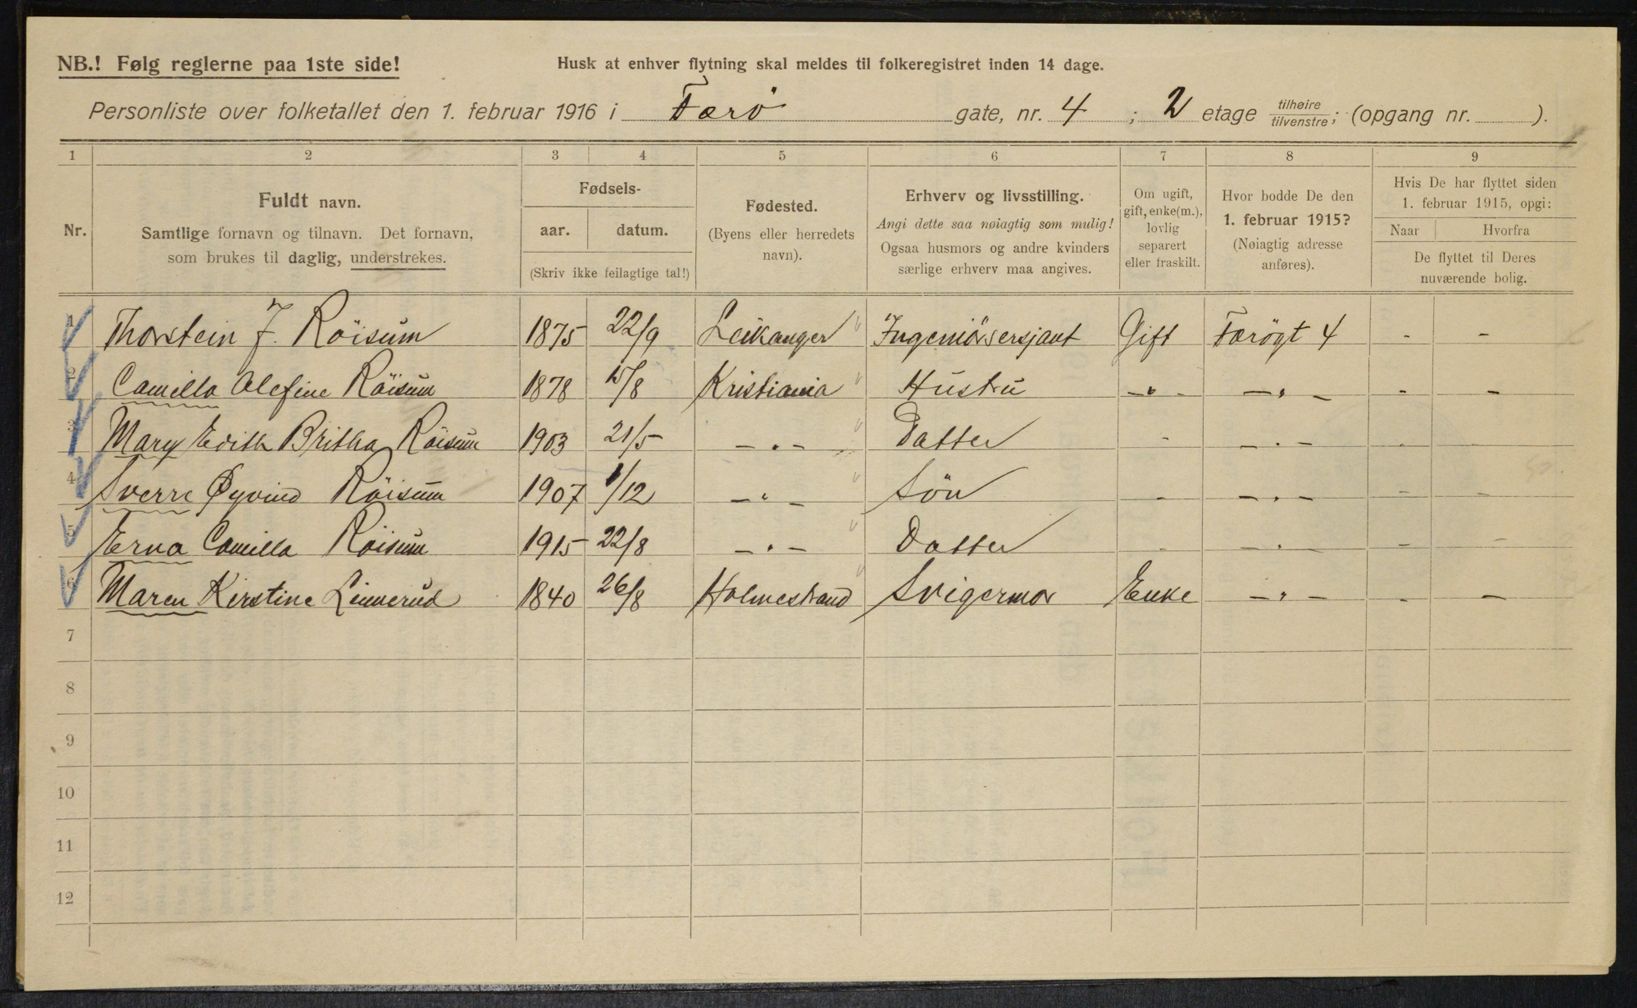 NB.! Følg reglerne paa 1ste side!
Husk at enhver flytning skal meldes til folkeregistret inden 14 dage.
Personliste over folketallet den 1. februar 1916 i Færö gate, nr. 4 ; 2 etage tilhøire tilvenstre; (opgang nr. ).
1 2 3 4 5 6 7 8 9
Nr.
Fuldt navn.
Samtlige fornavn og tilnavn. Det fornavn,
som brukes til daglig, understrekes.
Fødsels-
aar. datum.
(Skriv ikke feilagtige tal!)
Fødested.
(Byens eller herredets
navn).
Erhverv og livsstilling.
Angi dette saa nøiagtig som mulig!
Ogsaa husmors og andre kvinders
særlige erhverv maa angives.
Om ugift,
gift, enke(m.),
lovlig
separert
eller fraskilt.
Hvor bodde De den
1. februar 1915?
(Nøiagtig adresse
anføres).
Hvis De har flyttet siden
1. februar 1915, opgi:
Naar Hvorfra
De flyttet til Deres
nuværende bolig.
1 Thorstein J. Röisum 1875 22/9 Leikanger Ingeniörsersjant Gift Færögt 4 - -
2 Camilla Olefine Röisum 1878 15/8 Kristiania Hustru -"- -"- - -
3 Mary Edith Britha Röisum 1903 21/5 -"- Datter - -"- -
4 Sverre Øyvind Röisum 1907 1/12 -"- Sön - -"- - -
5 Erna Camilla Röisum 1915 22/8 -"- Datter - -"- - -
6 Maren Kirstine Linnerud 1840 26/8 Holmestrand Svigermor Enke -"- - -
7
8
9
10
11
12